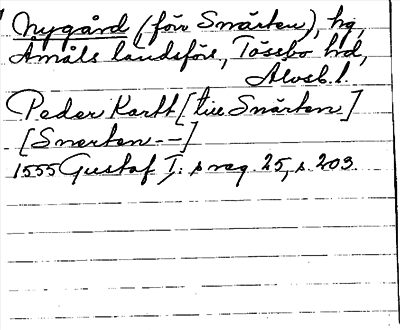 Nygård (förr Snärten), hg,
Åmåls landsförs, Tössbo hd,
Älvsb. l.
Peder Kartt [till Snärten]
[Snerten--]
1555 Gustaf I: s reg. 25, s. 203.